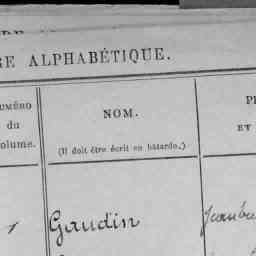 RE ALPHABÉTIQUE.
UMÉRO
du
olume.
NOM.
(Il doit être écrit en bâtarde.)
P
ET
1
Gaudin